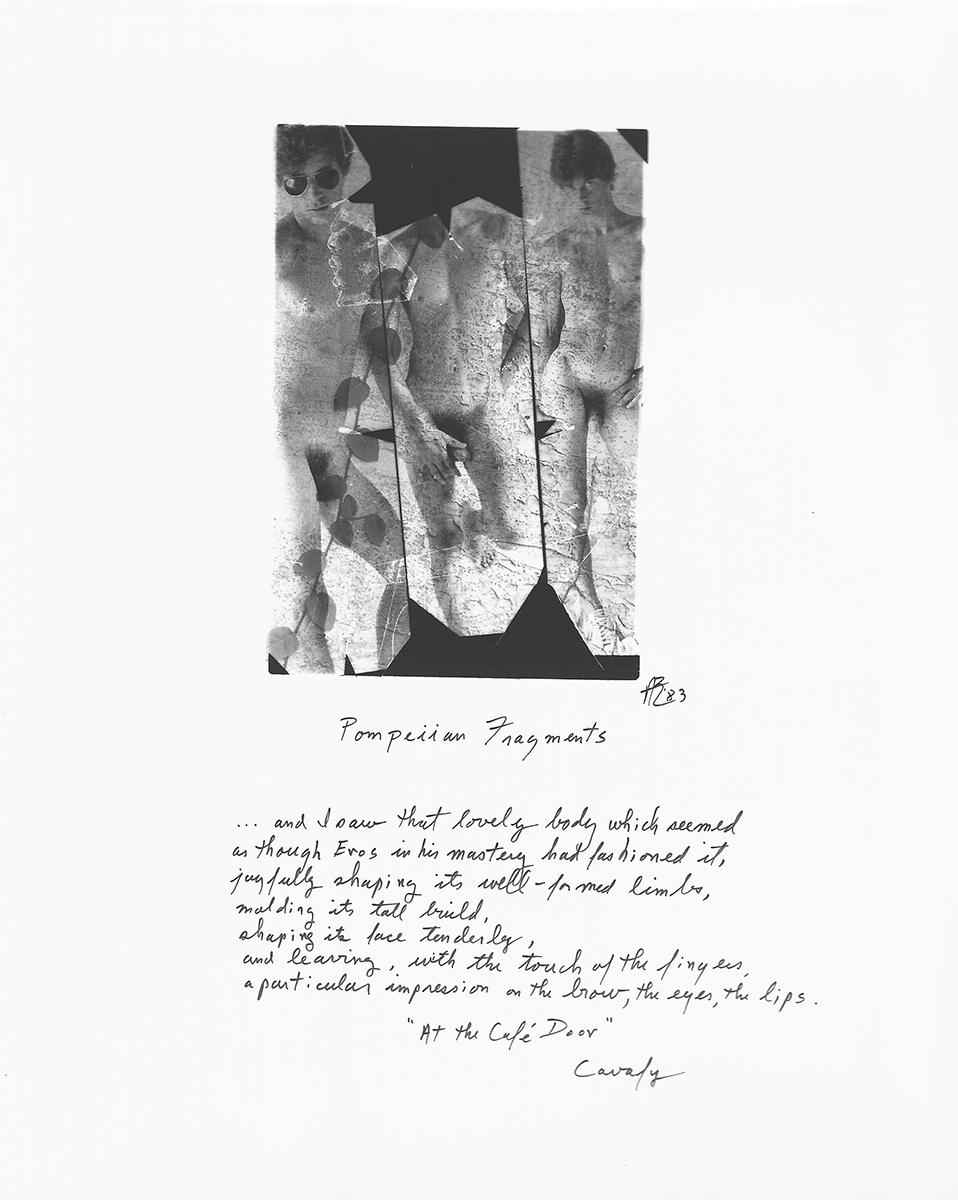 AR '83
Pompeiian Fragments
... and I saw that lovely body which seemed
as though Eros in his mastery had fashioned it,
joyfully shaping its well-formed limbs,
molding its tall build,
shaping its face tenderly,
and leaving, with the touch of the fingers,
a particular impression on the brow, the eyes, the lips.
"At the Café Door"
Cavafy